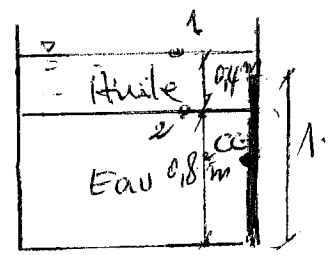 1
Huile 0,4 m
2
CG
Eau 0,8 m
1.